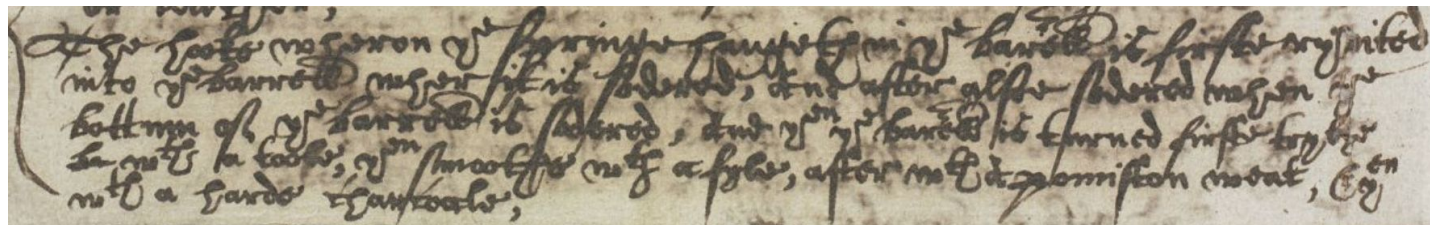 The hooke wheron yͤ springe hangeth in yͤ barrell is firste ryvited
into yͤ barrell wher it is sodered, And after alsoe sodered when yͤ
bottum of yͤ barrell is sodered, And yᵉⁿ yͤ barrell is turned firste
wᵗʰ a toole, yᵉⁿ smoothe wᵗʰ a fyle, after wᵗʰ a pomiston weat, & yᵉⁿ
wᵗʰ a harde charcole,